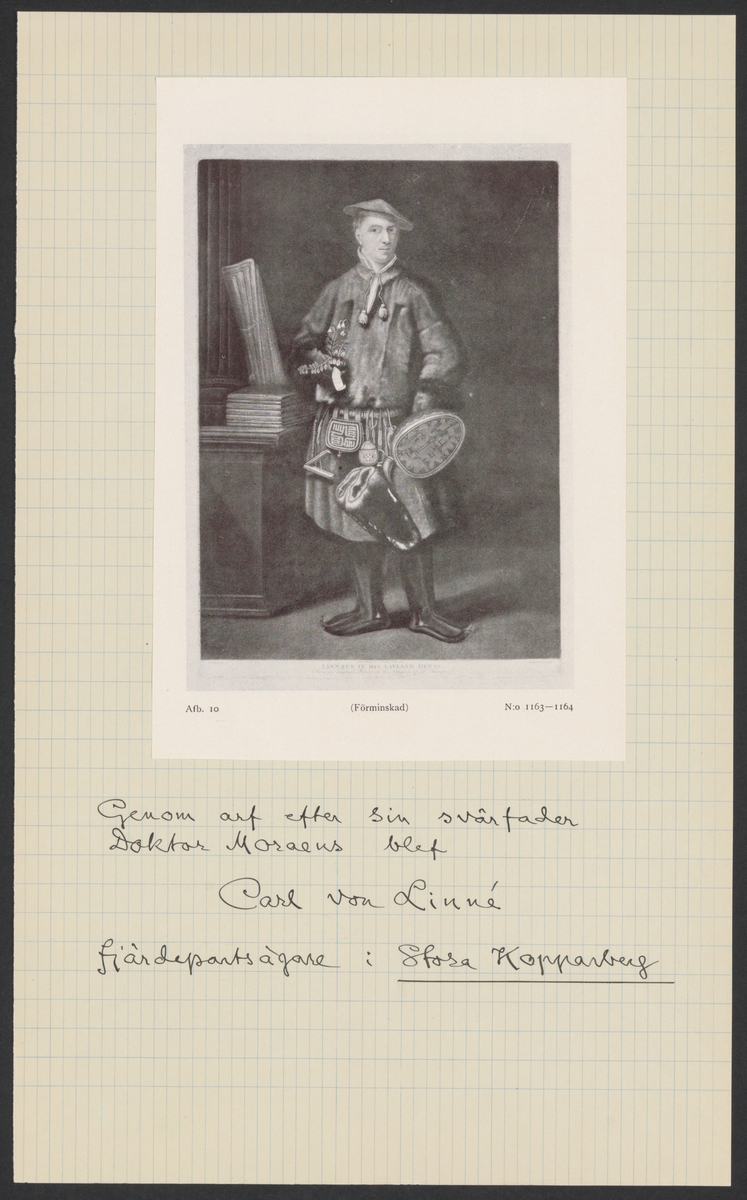 LINNÆUS IN HIS LAPLAND DRESS
Afb. 10 (Förminskad) N:o 1163—1164
Genom arf efter sin svärfader
Doktor Moraeus blef
Carl von Linné
fjärdepartsägare i Stora Kopparberg